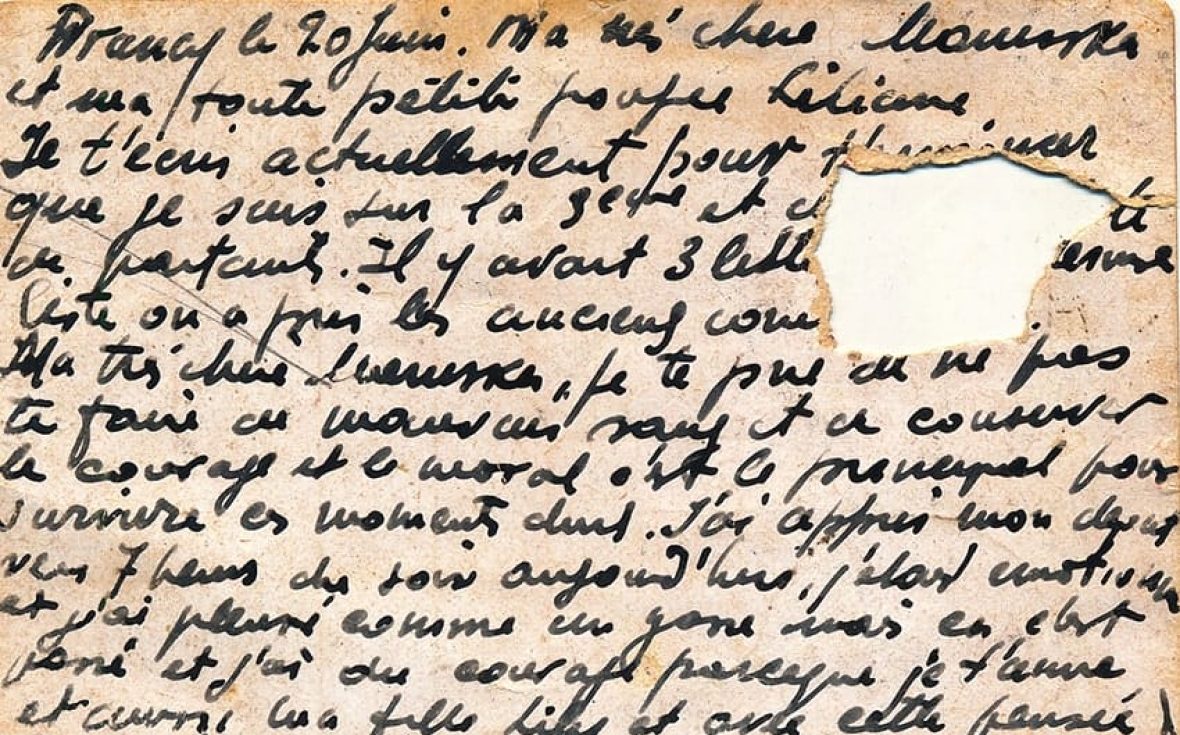 Drancy le 20 Juin. Ma trés chere Manuska
et ma toute petite poupee Liliane
Je t'ecris actuellement pour
que je suis sur la 3eme et
de partants. Il y avait 3
liste on a pris les anciens
Ma trés chere Manuska, je te prie de ne pas
te faire de mauvais sang et de conserver
le courage et le moral c'est le principal pour
survivre ces moments durs. J'ai appris mon depart
vers 7 heures du soir aujourd'hui, j'etais
et j'ai pleuré comme un gosse mais ca c'est
passé et j'ai du courage parceque je t'aime
et aussi ma fille Lily et avec cette pensée